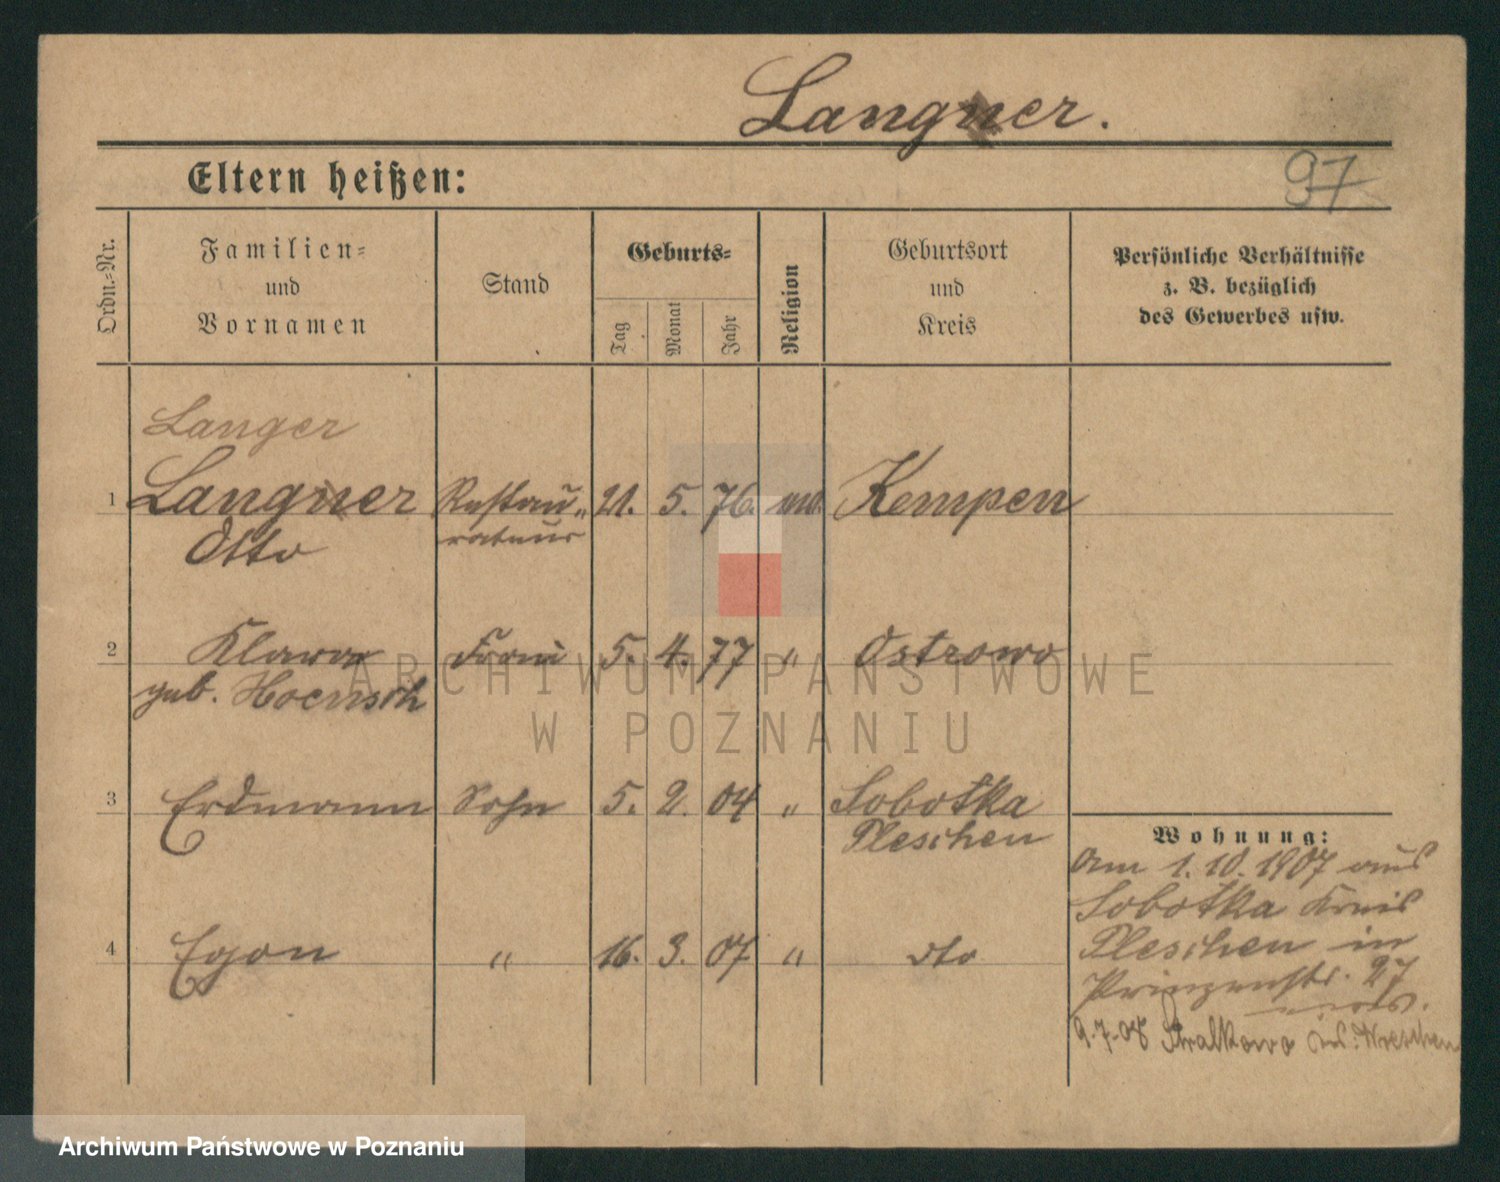 Langner.
97
Eltern heißen:
Ordn.-Nr.
Familien-
und
Vornamen
Stand
Geburts-
Tag
Monat
Jahr
Religion
Geburtsort
und
Kreis
Persönliche Verhältnisse
z. B. bezüglich
des Gewerbes usw.
Langer
1 Langner Restau- 21. 5. 76. Kempen
Otto rateur
2 Klara Frau 5. 4. 77 " Ostrowo
geb. Hoensch
3 Erdmann Sohn 5. 2. 04 " Sobotka
Pleschen
4 Egon " 16. 3. 07 " dto
Wohnung:
Am 1.10.1907 aus
Sobotka Kreis
Pleschen in
Prinzenstr. 27
9.7.08 Stralkowo Wreschen
ARCHIWUM PAŃSTWOWE
W POZNANIU
Archiwum Państwowe w Poznaniu